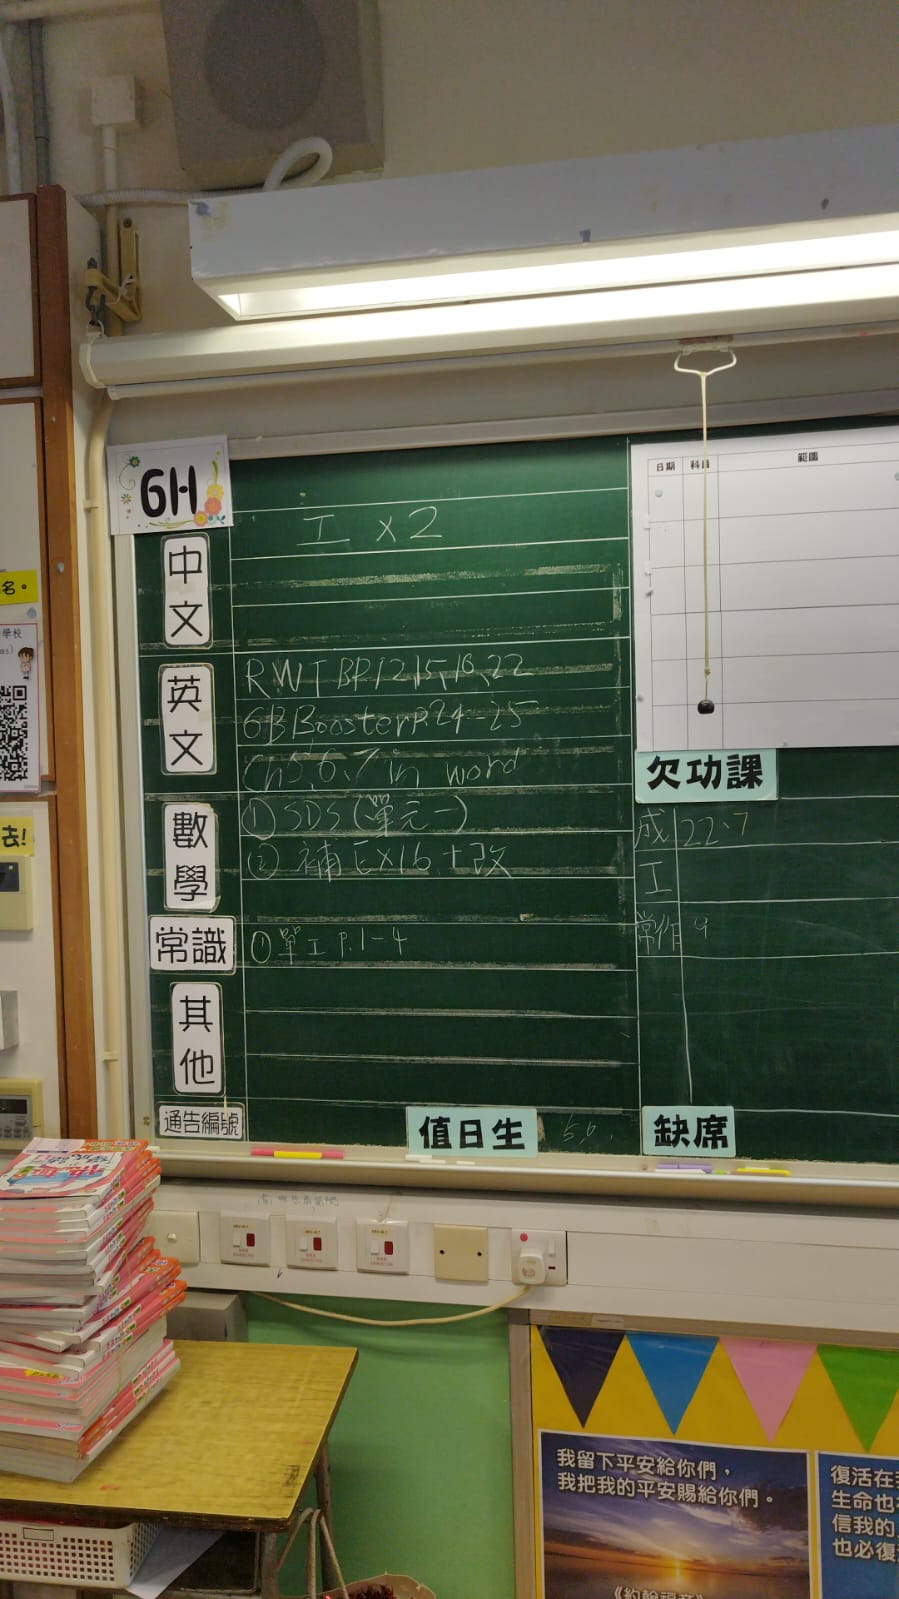 6H
中文
工 x2
英文
RWTBP.12,15,16,22
6B Booster P.24-25
Ch5,6,7 in word
數學
① SDS (單元一)
② 補Ex16 + 改
常識
① 單工 p.1-4
其他
通告編號
值日生
日期 科目 範圍
欠功課
成 22、7
工
常作 9
缺席
名。
學校
去!
我留下平安給你們，
我把我的平安賜給你們。
《約翰福音》
復活在
生命也
信我的
也必復